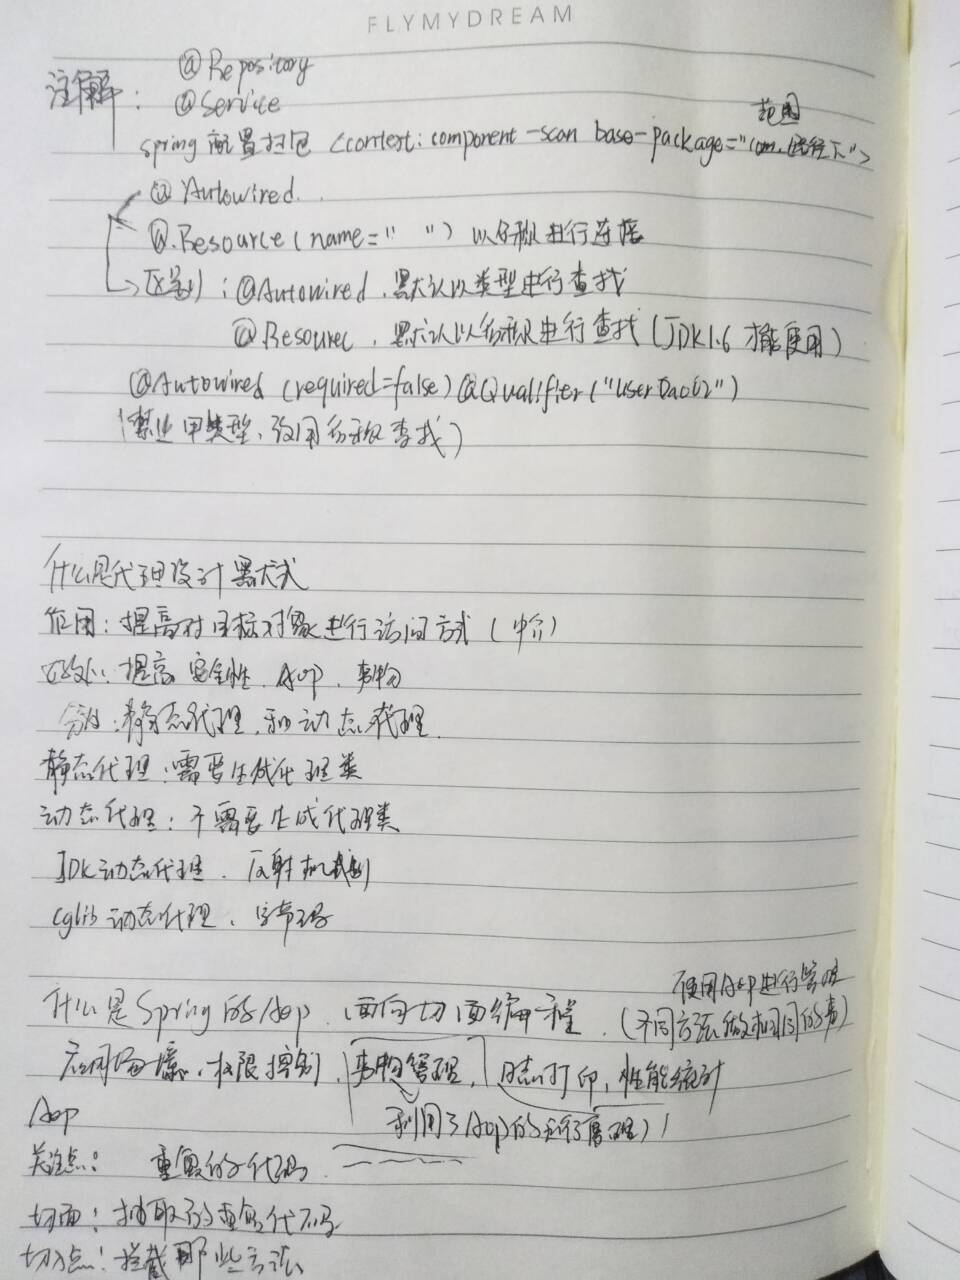 FLYMYDREAM
@Repository
注解: @Service
范围
spring 配置扫包 <context:component-scan base-package="com.路径下">
@Autowired.
@.Resource(name=" ") 以名称进行连接
区别: @Autowired、默认以类型进行查找
@Resourec、默认以名称进行查找(JDK1.6才能使用)
@Autowired (required=false) @Qualifier("userDao02")
(禁止用类型、改用名称查找)
什么是代理设计模式
作用:提高对目标对象进行访问方式(中介)
好处:提高安全性、Aop、事物
分为:静态代理、和动态代理.
静态代理:需要生成代理类
动态代理:不需要生成代理类
JDK动态代理、反射机制
cglib动态代理、字节码
使用Aop进行管理
什么是Spring的Aop、面向切面编程、(不同方法做相同的事)
应用场景、权限控制、事物管理、日志打印、性能统计
利用了Aop的运行原理)
Aop
关注点: 重复的代码.
切面:抽取的重复代码
切入点:拦截那些方法